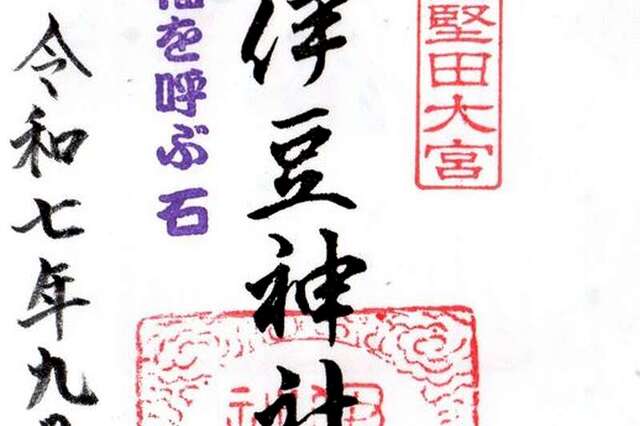 堅田大宮
伊豆神社
を呼ぶ石
令和七年九